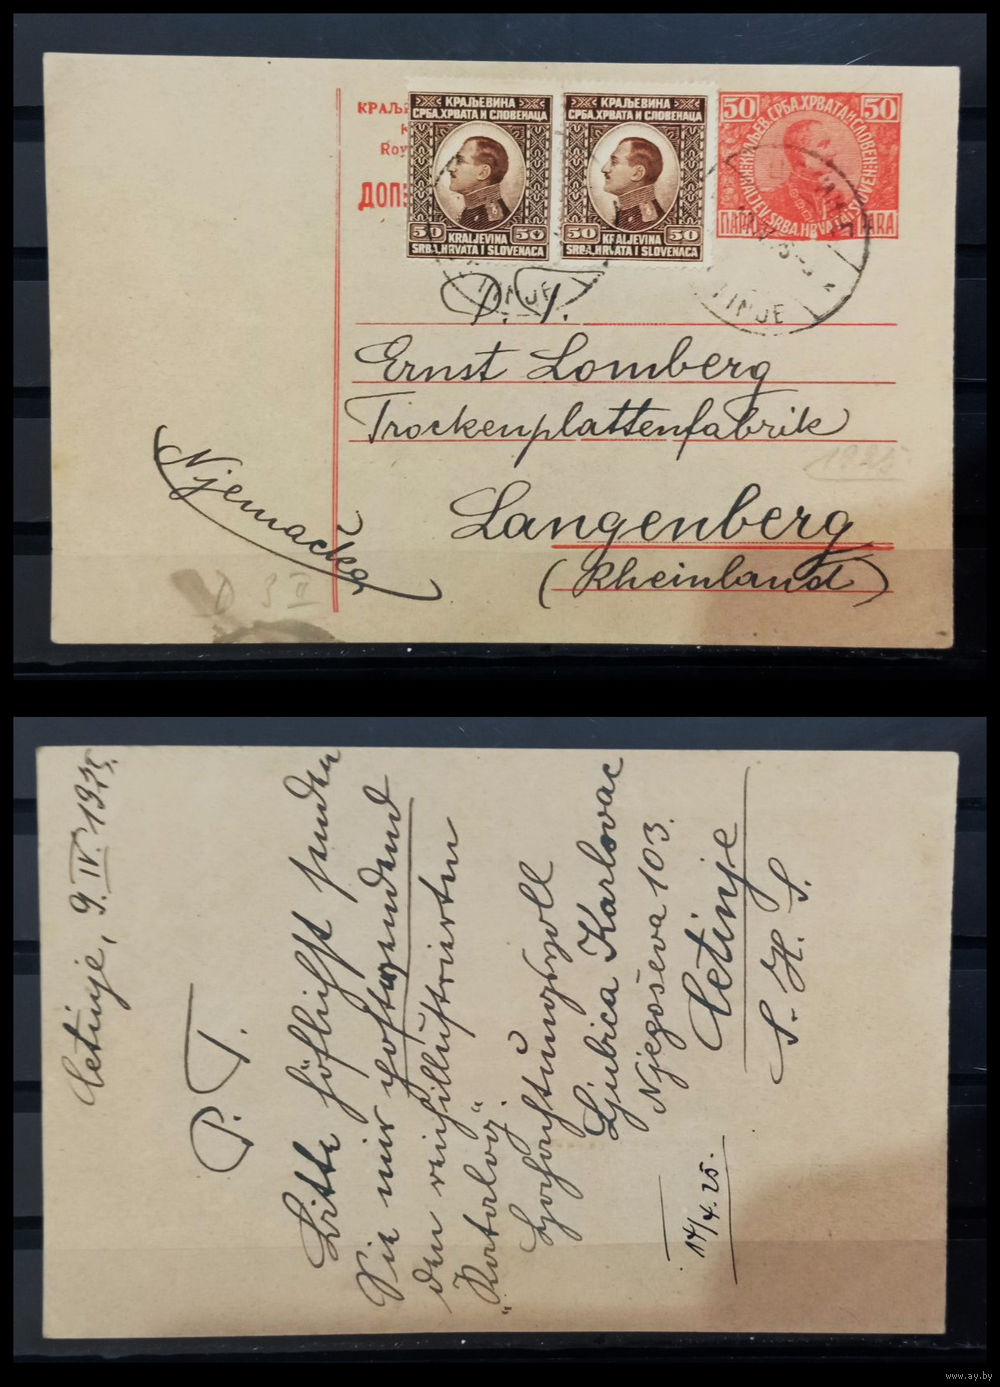 КРАЉЕВИНА
СРБА, ХРВАТА И СЛОВЕНАЦА
50 50
KRALJEVINA
SRBA, HRVATA I SLOVENACA
КРАЉЕВИНА
СРБА, ХРВАТА И СЛОВЕНАЦА
50 50
KRALJEVINA
SRBA, HRVATA I SLOVENACA
50 50
КРАЉЕВ. СРБА, ХРВАТА И СЛОВЕН.
KRALJEV. SRBA, HRVATA I SLOVEN.
ПАРА PARA
КРАЉЕ
Roy
ДОПИ
TINJE
P. T.
Ernst Lomberg
Trockenplattenfabrik
Langenberg
(Rheinland)
Njemačka
1925
D 3 II
Cetinje, 9. IV. 1925.
P. T.
Bitte höflichst senden
Sie mir postwendend
den reichillustrierten
„Katalog“.
Hochachtungsvoll
Ljubica Karlovac
Njegoševa 103.
Cetinje
S. H. S.
14/4. 25.
www.ay.by